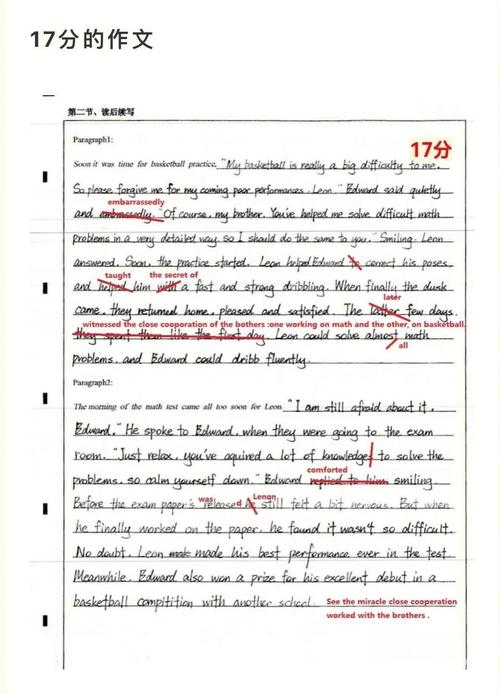 17分的作文
第二节、读后续写
Paragraph1:
17分
Soon it was time for basketball practice. "My basketball is really a big difficulty to me.
So please forgive me for my coming poor performances, Leon." Edward said quietly
embarrassedly
and embrassedly. "Of course, my brother. You've helped me solve difficult math
problems in a very detailed way, so I should do the same to you." Smiling, Leon
answered. Soon, the practice started. Leon helped Edward to correct his poses,
taught the secret of
and helped him with a fast and strong dribbling. When finally the dusk
later
came, they returned home, pleased and satisfied. The latter few days,
witnessed the close cooporation of the bothers :one working on math and the other, on basketball.
they spent them like the first day. Leon could solve almost math
all
problems, and Edward could dribb fluently.
Paragraph2:
The morning of the math test came all too soon for Leon. "I am still afraid about it,
Edward." He spoke to Edward, when they were going to the exam
room. "Just relax, you've aquired a lot of knowledge to solve the
comforted
problems, so calm yourself down." Edward replied to him smiling.
was Lenon
Before the exam paper's released he still felt a bit nervous. But when
he finally worked on the paper, he found it wasn't so difficult.
No doubt, Leon made his best performance ever in the test.
Meanwhile, Edward also won a prize for his excellent debut in a
basketball compitition with another school.
See the miracle close cooperation
worked with the brothers .